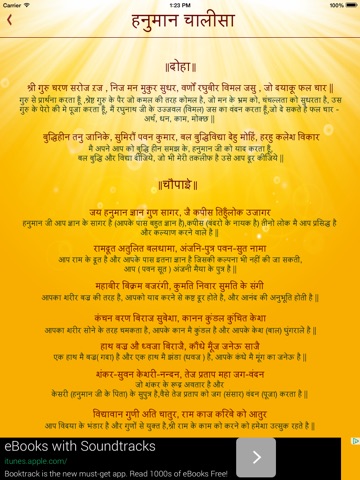 Carrier
1:23 PM
100%
हनुमान चालीसा
||दोहा||
श्री गुरु चरण सरोज रज , निज मन मुकुर सुधर, वर्णों रघुबीर विमल जसु , जो दयाकू फल चार ||
गुरु से प्रार्थना करता हूँ ,श्रेष्ठ गुरु के पैर जो कमल की तरह कोमल है, जो मन के भ्रम को, चंचलता को सुधरता है, उस
गुरु के पेरो की मे पूजा करता हूँ, मैं रघुनाथ जी के उज्जवल (विमल) जस का वंदन करता हूँ,जो दे सकते है फल चार -
अर्थ, धन, काम, मोक्छ ||
बुद्धिहीन तनु जानिके, सुमिरौं पवन कुमार, बल बुद्धिविद्या देहु मोहिं, हरहु कलेश विकार
मै अपने आप को बुद्धि हीन समझ के, हनुमान जी को याद करता हूँ,
बल बुद्धि और विद्या दीजिये, जो भी मेरी तकलीफ है उसे आप दूर कीजिये ||
||चौपाई||
जय हनुमान ज्ञान गुण सागर, जै कपीस तिहुँलोक उजागर
हनुमान जी आप ज्ञान के सागर है (आपके पास बहुत ज्ञान है),कपीस (वंदरो के नायक है) तीनो लोक मै आप प्रसिद्ध है
और कल्याण करने वाले है ||
रामदूत अतुलित बलधामा, अंजनि-पुत्र पवन-सुत नामा
आप राम के दूत है और आपके पास इतना ज्ञान है जिसकी कल्पना भी नहीं की जा सकती,
आप ( पवन सूत ) अंजनी मैया के पुत्र है ||
महाबीर बिक्रम बजरंगी, कुमति निवार सुमति के संगी
आपका शरीर बज्र की तरह है, आपको याद करने से कष्ट दूर होते है, और आनंद की अनुभूति होती है ||
कंचन बरण बिराज सुबेशा, कानन कुंडल कुंचित केशा
आपका शरीर सोने के तरह चमकता है, आपके कान मै कुंडल है और आपके केश (बाल) घुंगराले है ||
हाथ बज्र औ ध्वजा बिराजै, काँधे मूँज जनेऊ साजै
एक हाथ मै बज्र( गदा) है और एक हाथ मै झंडा (धवज ) है, आपके कंधे मै मूंग का जनेऊ है ||
शंकर-सुवन केशरी-नन्दन, तेज प्रताप महा जग-वंदन
जो शंकर के रूद्र अवतार है और
केसरी (हनुमान जी के पिता) के सुपुत्र है,वैसे तेज प्रताप को जग (संसार) वंदन (पूजा) करता है ||
विद्यावान गुणी अति चातुर, राम काज करिबे को आतुर
आप विधया के भंडार है और गुणों से युक्त है,श्री राम के काम को करने को हमेशा उत्सुक रहते है ||
eBooks with Soundtracks
itunes.apple.com/
Booktrack is the new must-get app. Read 1000s of eBooks Free!